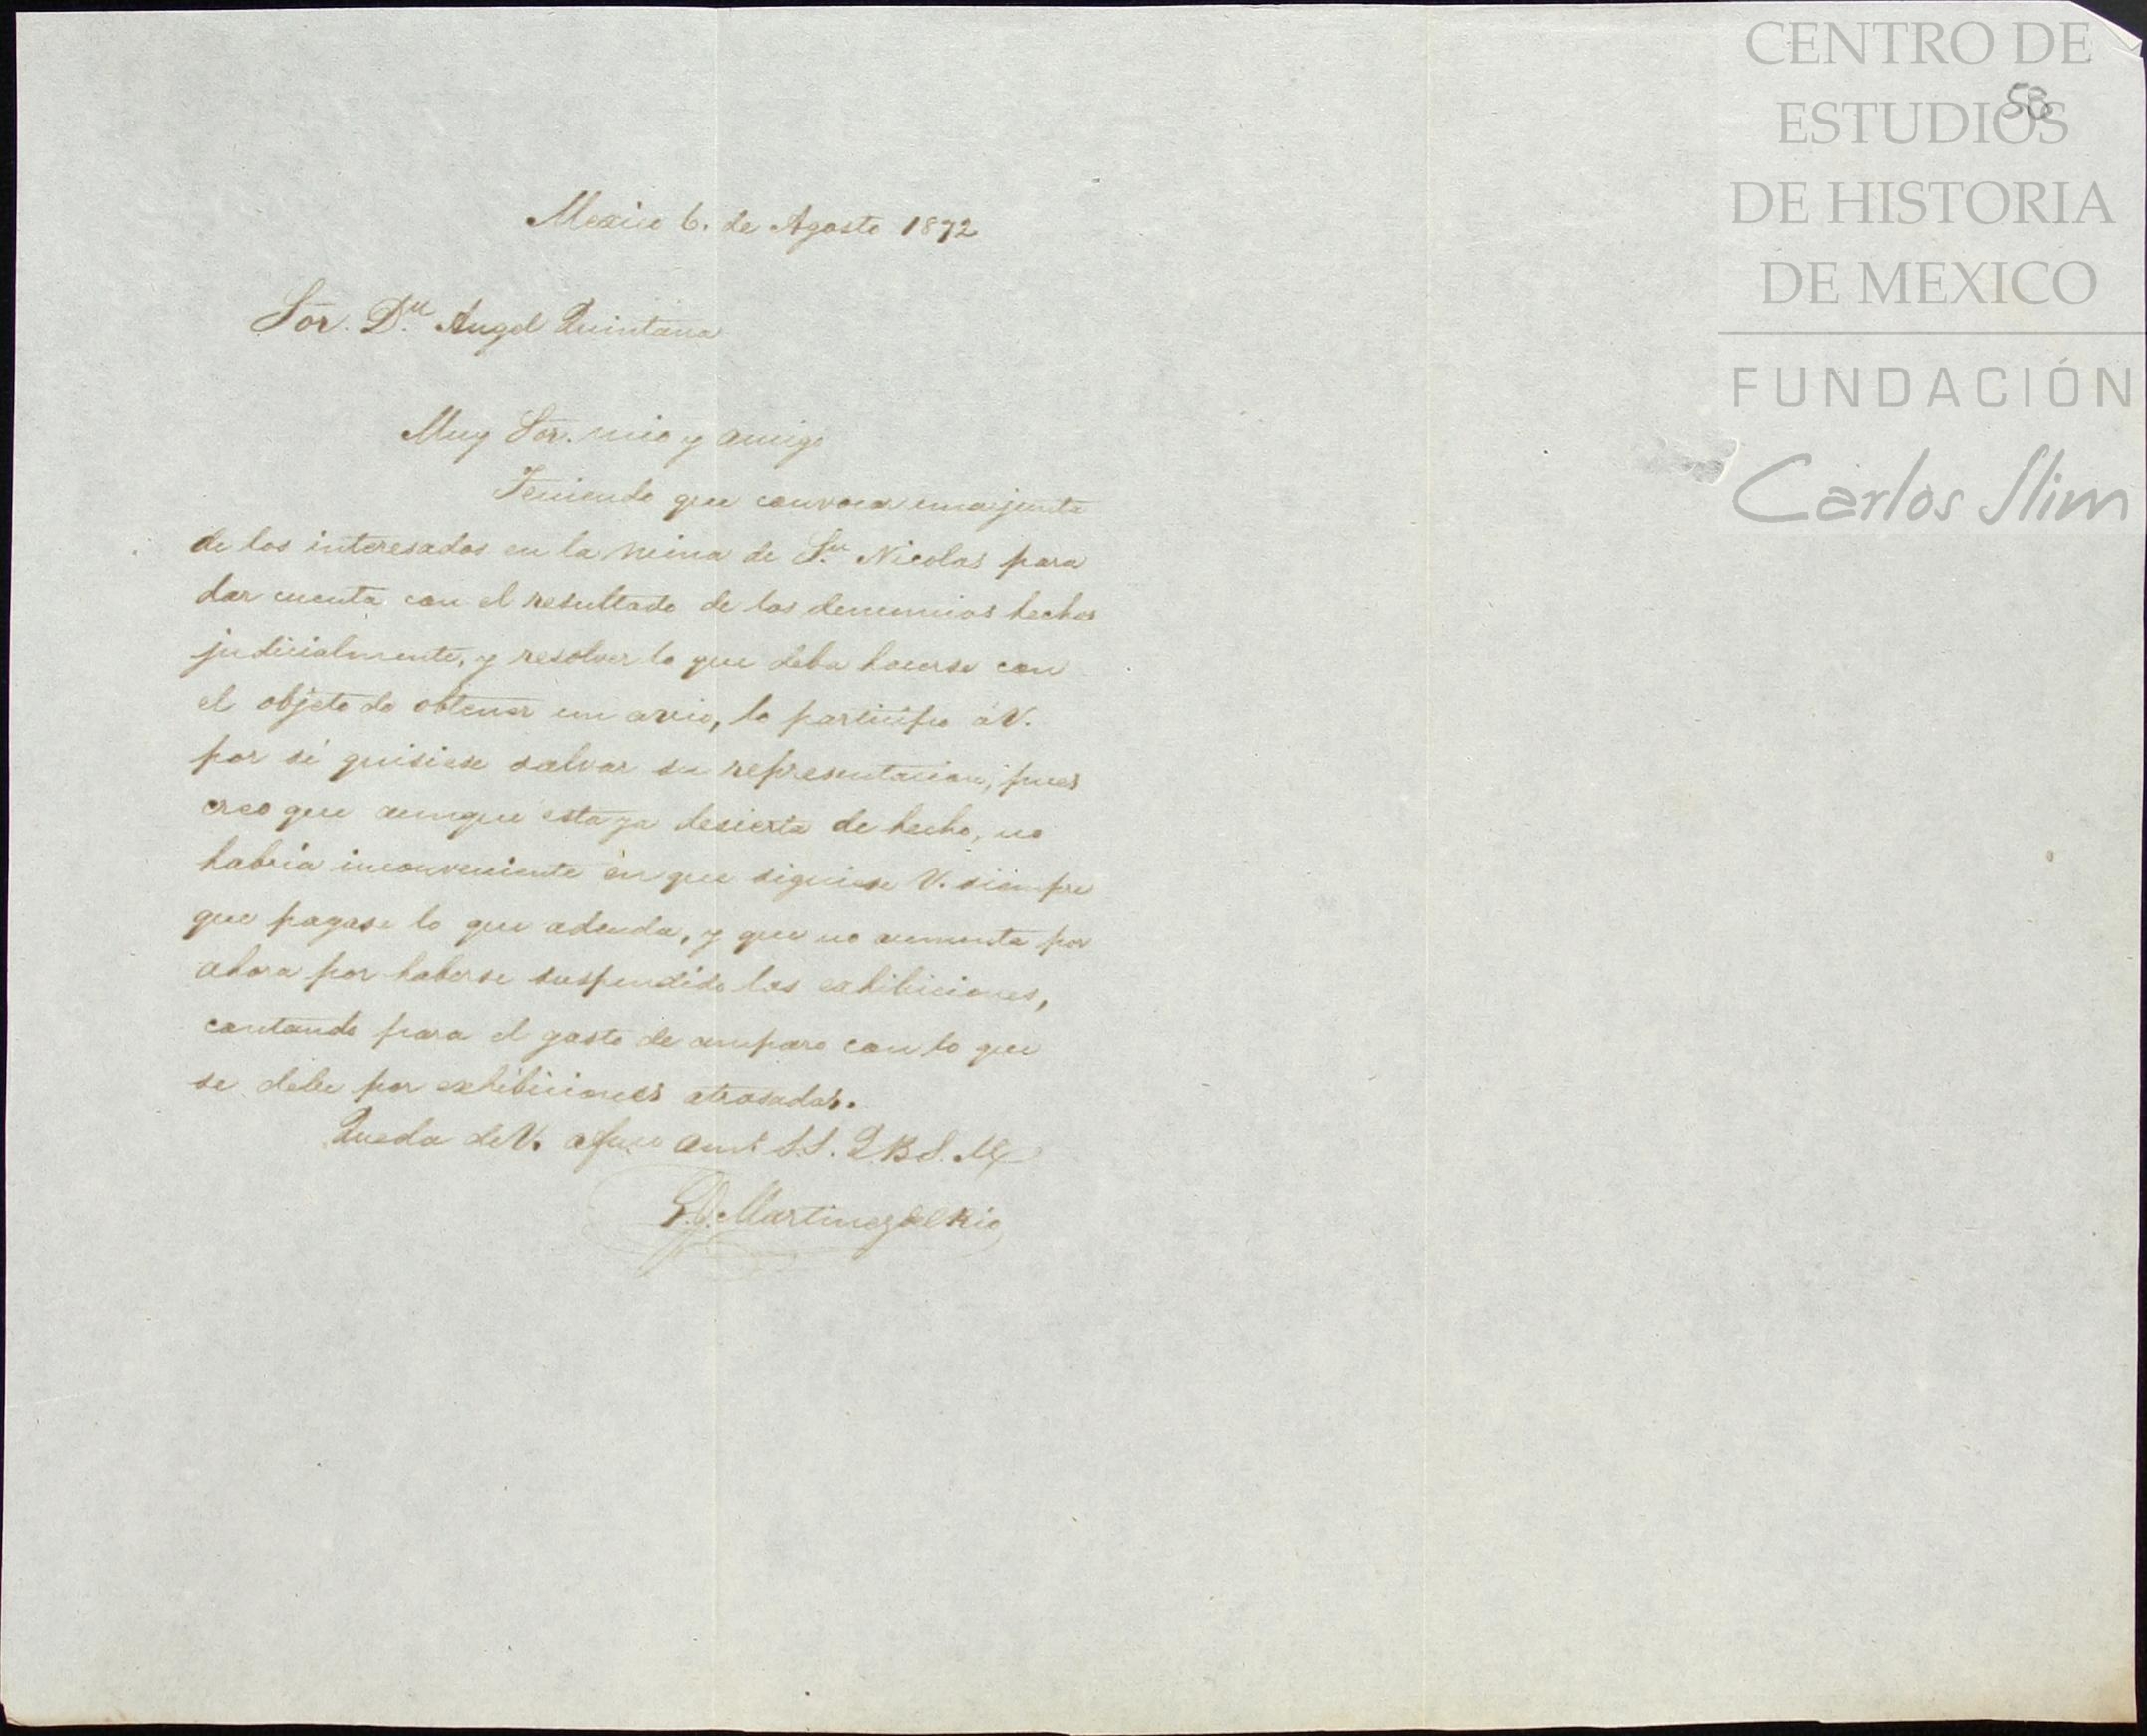 CENTRO DE
ESTUDIOS
DE HISTORIA
DE MEXICO
FUNDACIÓN
Carlos Slim
58
Mexico 6. de Agosto 1872
Sor. Dn. Angel Quintana
Muy Sor. mio y amigo
Teniendo que convocar una junta
de los interesados en la mina de Sn. Nicolas para
dar cuenta con el resultado de los denuncios hechos
judicialmente, y resolver lo que deba hacerse con
el objeto de obtener un avio, lo participo á V.
por si quisiese salvar su representacion, pues
creo que aunque esta ya desierta de hecho, no
habria inconveniente en que siguiese V. siempre
que pagase lo que adeuda, y que no aumenta por
ahora por haberse suspendido las exhibiciones,
contando para el gasto de amparo con lo que
se debe por exhibiciones atrasadas.
Queda de V. afmo amo S.S. Q.B.S.M.
Martinez del Rio